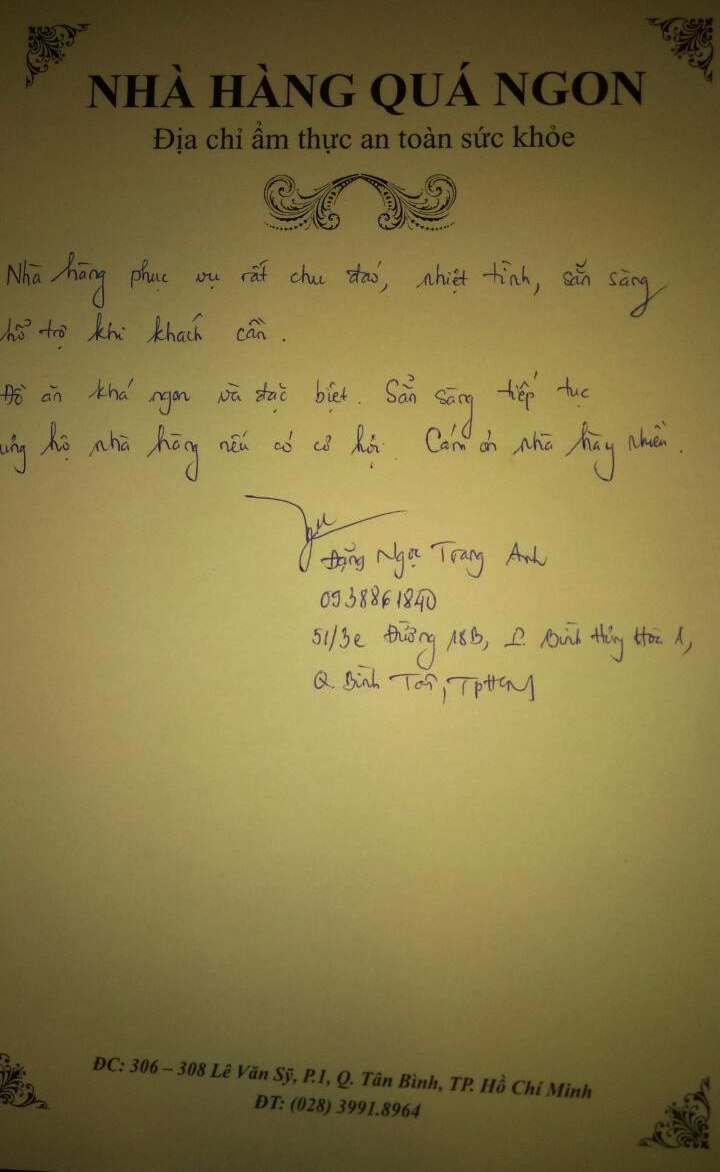 NHÀ HÀNG QUÁ NGON
Địa chỉ ẩm thực an toàn sức khỏe
Nhà hàng phục vụ rất chu đáo, nhiệt tình, sẵn sàng
hỗ trợ khi khách cần.
Đồ ăn khá ngon và đặc biệt. Sẵn sàng tiếp tục
ủng hộ nhà hàng nếu có cơ hội. Cám ơn nhà hàng nhiều.
Đặng Ngọc Trang Anh
0938861840
51/3e Đường 18B, P. Bình Hưng Hòa A,
Q. Bình Tân, TpHCM
ĐC: 306 – 308 Lê Văn Sỹ, P.1, Q. Tân Bình, TP. Hồ Chí Minh
ĐT: (028) 3991.8964